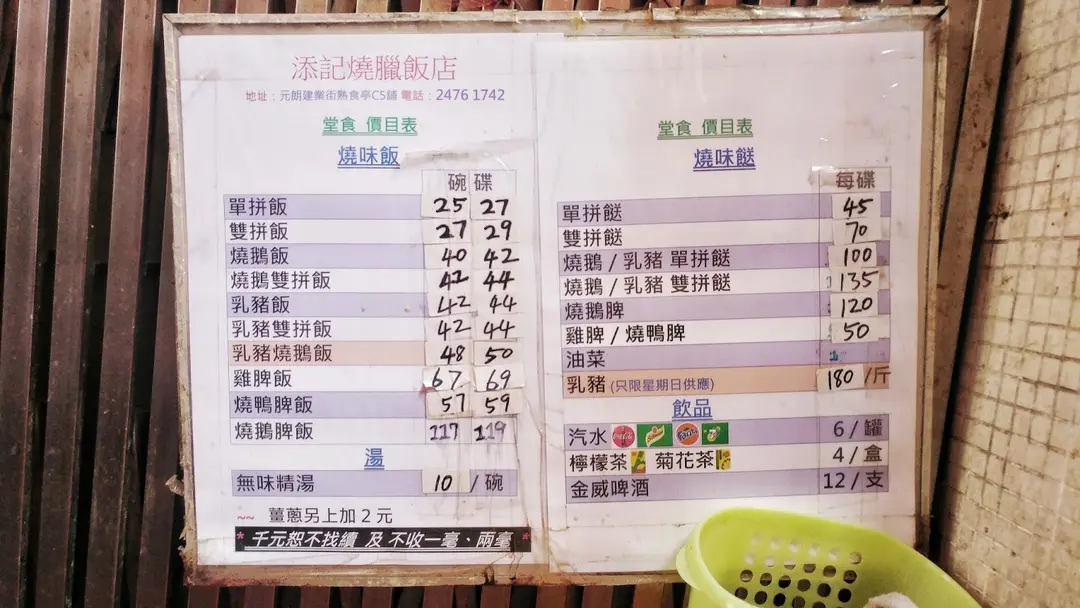 添記燒臘飯店
地址：元朗建業街熟食亭C5舖 電話：2476 1742
堂食 價目表
燒味飯
碗 碟
單拼飯 25 27
雙拼飯 27 29
燒鵝飯 40 42
燒鵝雙拼飯 42 44
乳豬飯 42 44
乳豬雙拼飯 42 44
乳豬燒鵝飯 48 50
雞脾飯 67 69
燒鴨脾飯 57 59
燒鵝脾飯 117 119
湯
無味精湯 10 / 碗
~~ 薑蔥另上加 2 元
* 千元恕不找續 及 不收一毫、兩毫 *
堂食 價目表
燒味餸
每碟
單拼餸 45
雙拼餸 70
燒鵝 / 乳豬 單拼餸 100
燒鵝 / 乳豬 雙拼餸 135
燒鵝脾 120
雞脾 / 燒鴨脾 50
油菜
乳豬 (只限星期日供應) 180 /斤
飲品
汽水 6 / 罐
檸檬茶 菊花茶 4 / 盒
金威啤酒 12 / 支